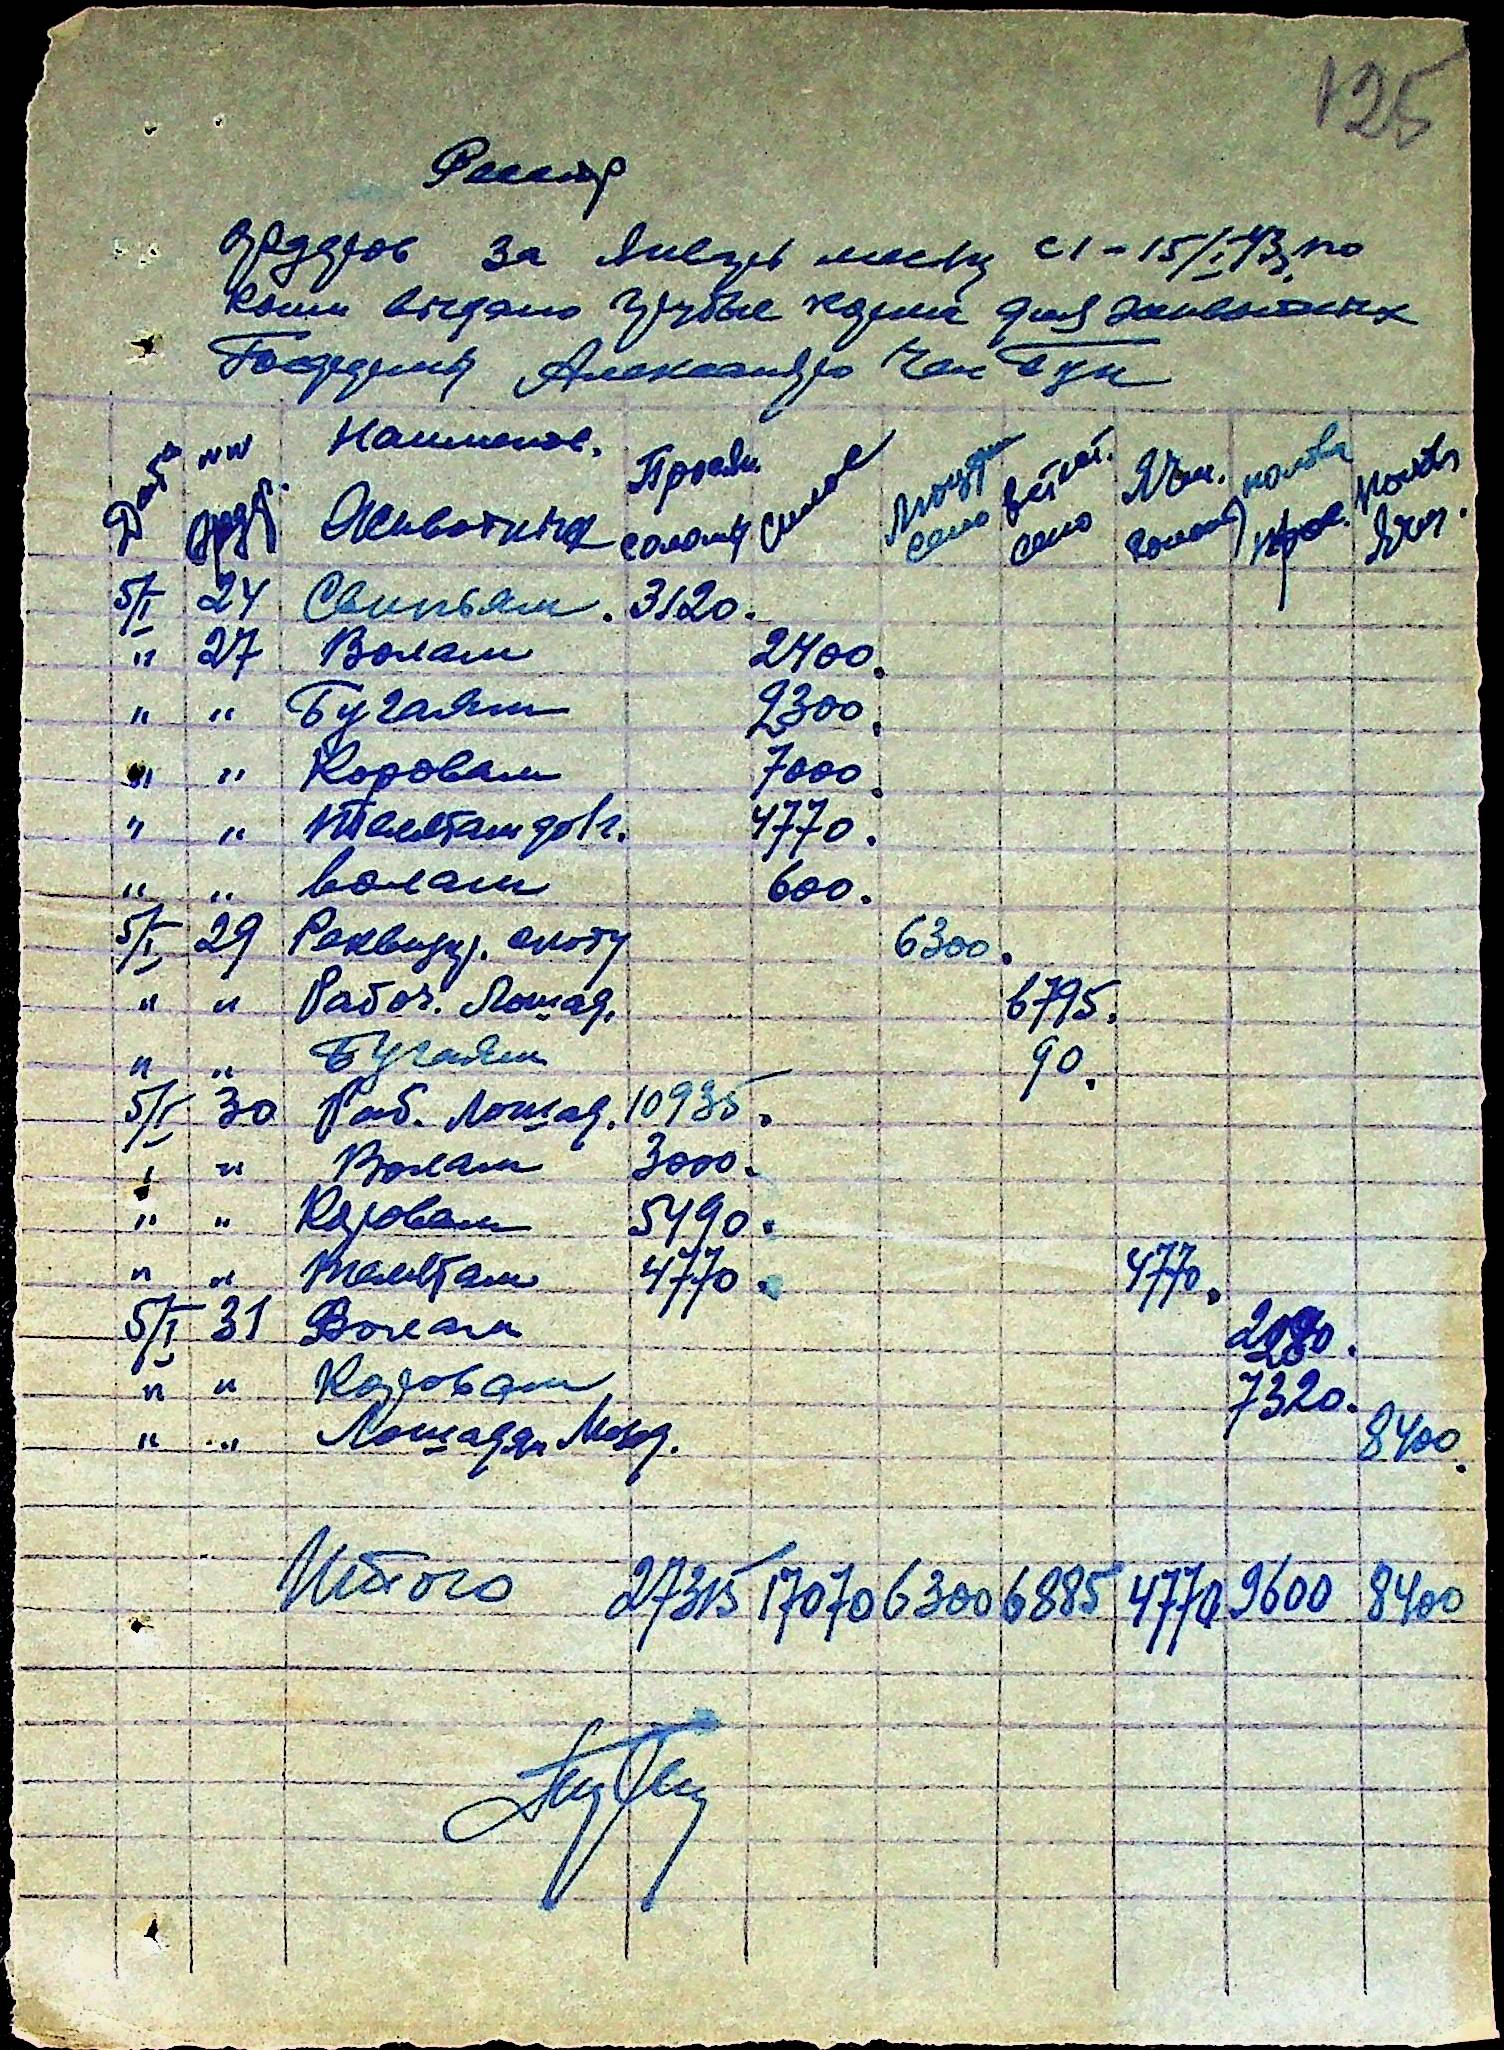 125
Реестр
ордеров за январь месяц с 1 - 15/I 43, по
коим выдано грубые корма для животных
Госимения Александро
Дата №№ ордер. Наименов. животных Просян. солома силос сено сено Ячм. солома полова прос. полова Ячм.
5/I 24 Свиньям. 3120.
" 27 Волам 2400.
" " Бугаям 2300.
" " Коровам 7000.
" " Телятам до 1 г. 4770.
" " Волам 600.
5/I 29 Реквизир. скоту 6300.
" " Рабоч. Лошад. 6795.
" " Бугаям 90.
5/I 30 Раб. Лошад. 10935.
" " Волам 3000.
" " Коровам 5490.
" " Телятам 4770. 4770.
5/I 31 Волам 2280.
" " Коровам 7320.
" " Лошадям Молод. 8400.
Итого 27315 17070 6300 6885 4770 9600 8400